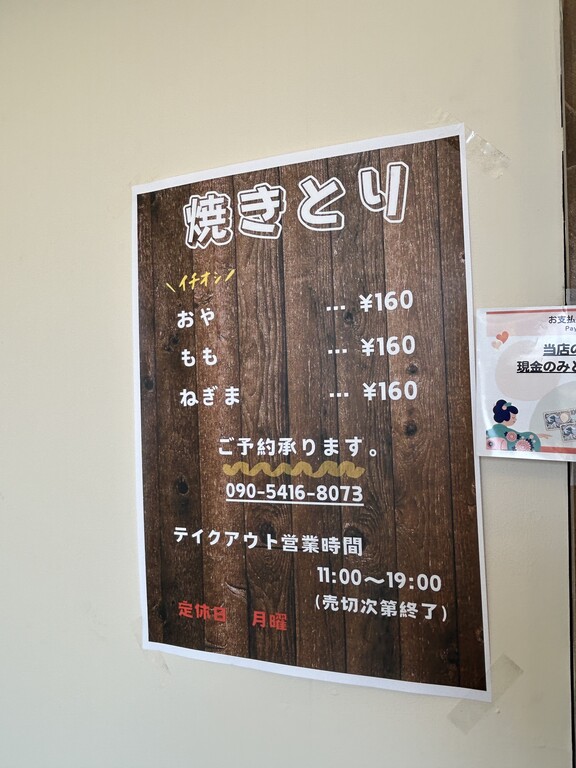 焼きとり
\イチオシ/
おや … ¥160
もも … ¥160
ねぎま … ¥160
ご予約承ります。
090-5416-8073
テイクアウト営業時間
11:00～19:00
(売切次第終了)
定休日 月曜
お支払
Pay
当店の
現金のみと